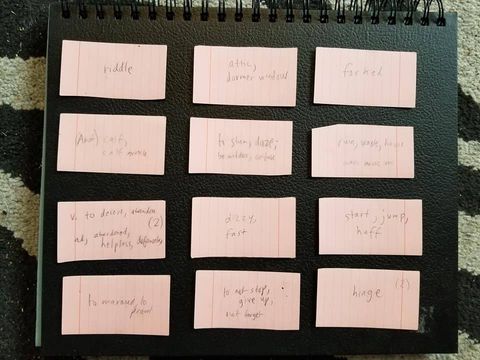 riddle
attic,
dormer window
forked
(Anat) calf,
calf muscle
to stun, daze;
bewilder, confuse
ruin, waste, havoc
v. to desert, abandon
(2)
ad, abandoned,
helpless, defenseless
dizzy,
fast
start, jump,
huff
to maraud, to
prowl
to not stop,
give up;
not forget
hinge (2)